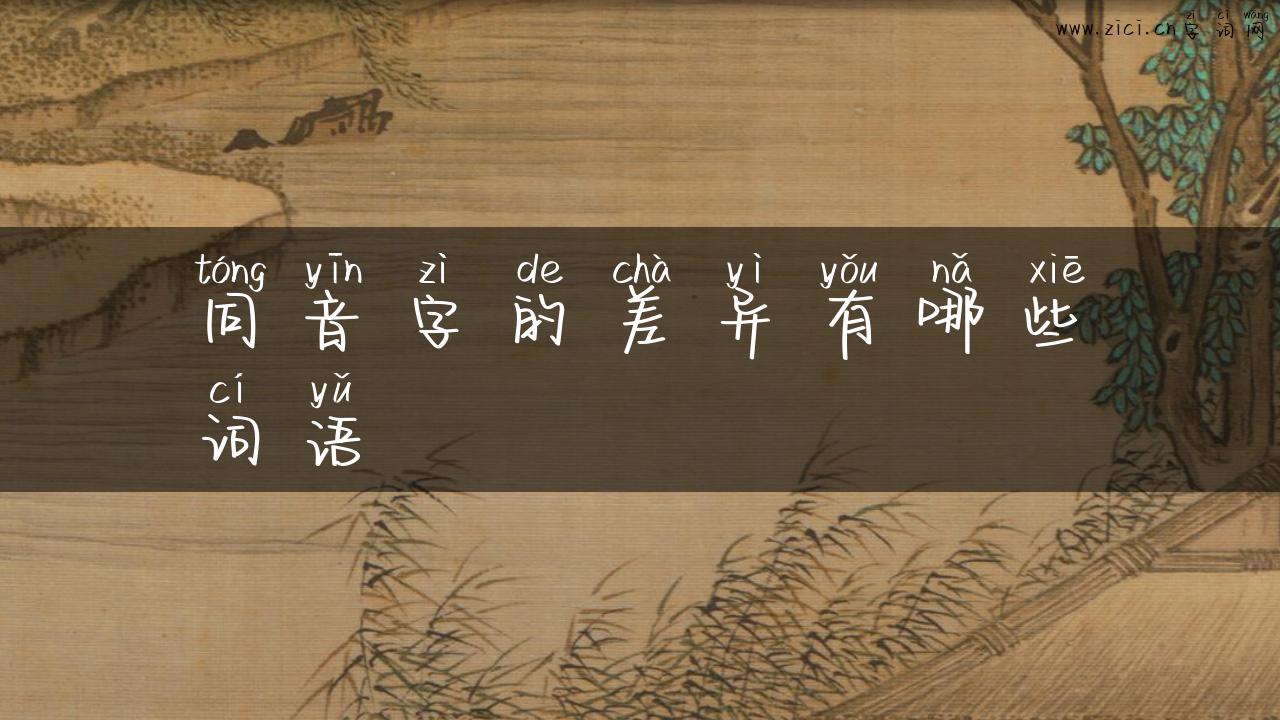 zì cí wǎng
www.zici.cn字词网
tóng yīn zì de chà yì yǒu nǎ xiē
同音字的差异有哪些
cí yǔ
词语